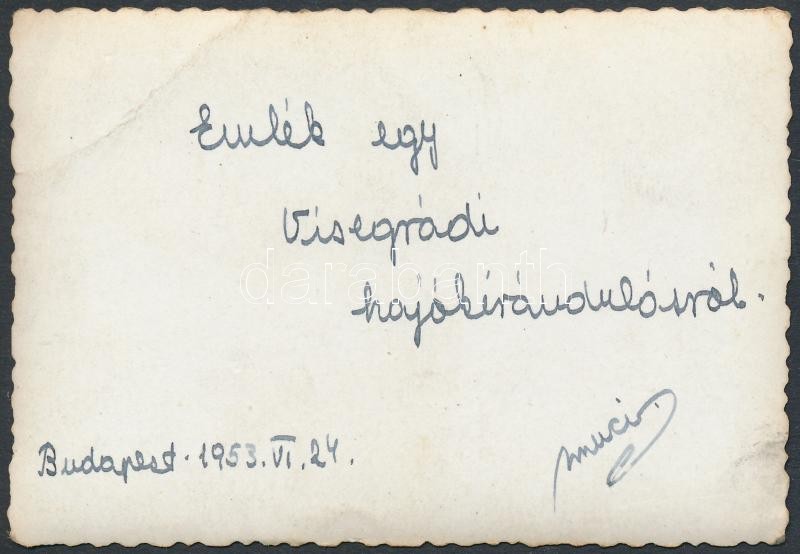 Emlék egy
Visegrádi
hajókirándulásról.
Budapest. 1953. VI. 24.
darabanth